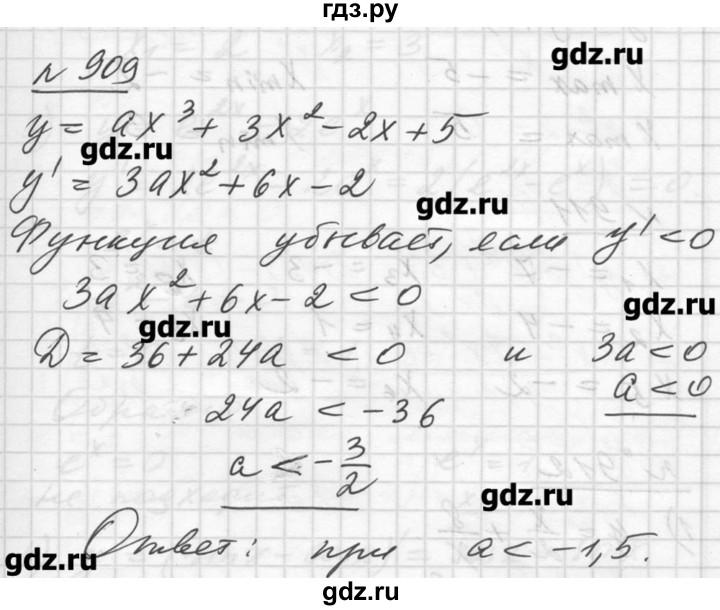 гдз.ру
gdz.ru
№ 909
y = ax³ + 3x² - 2x + 5
gdz.ru
y' = 3ax² + 6x - 2
gdz.ru
Функция убывает, если y' < 0
3ax² + 6x - 2 < 0
gdz.ru
gdz.ru
D = 36 + 24a < 0 и 3a < 0
a < 0
24a < -36
a < -3/2
gdz.ru
Ответ: при a < -1,5.
gdz.ru
gdz.ru